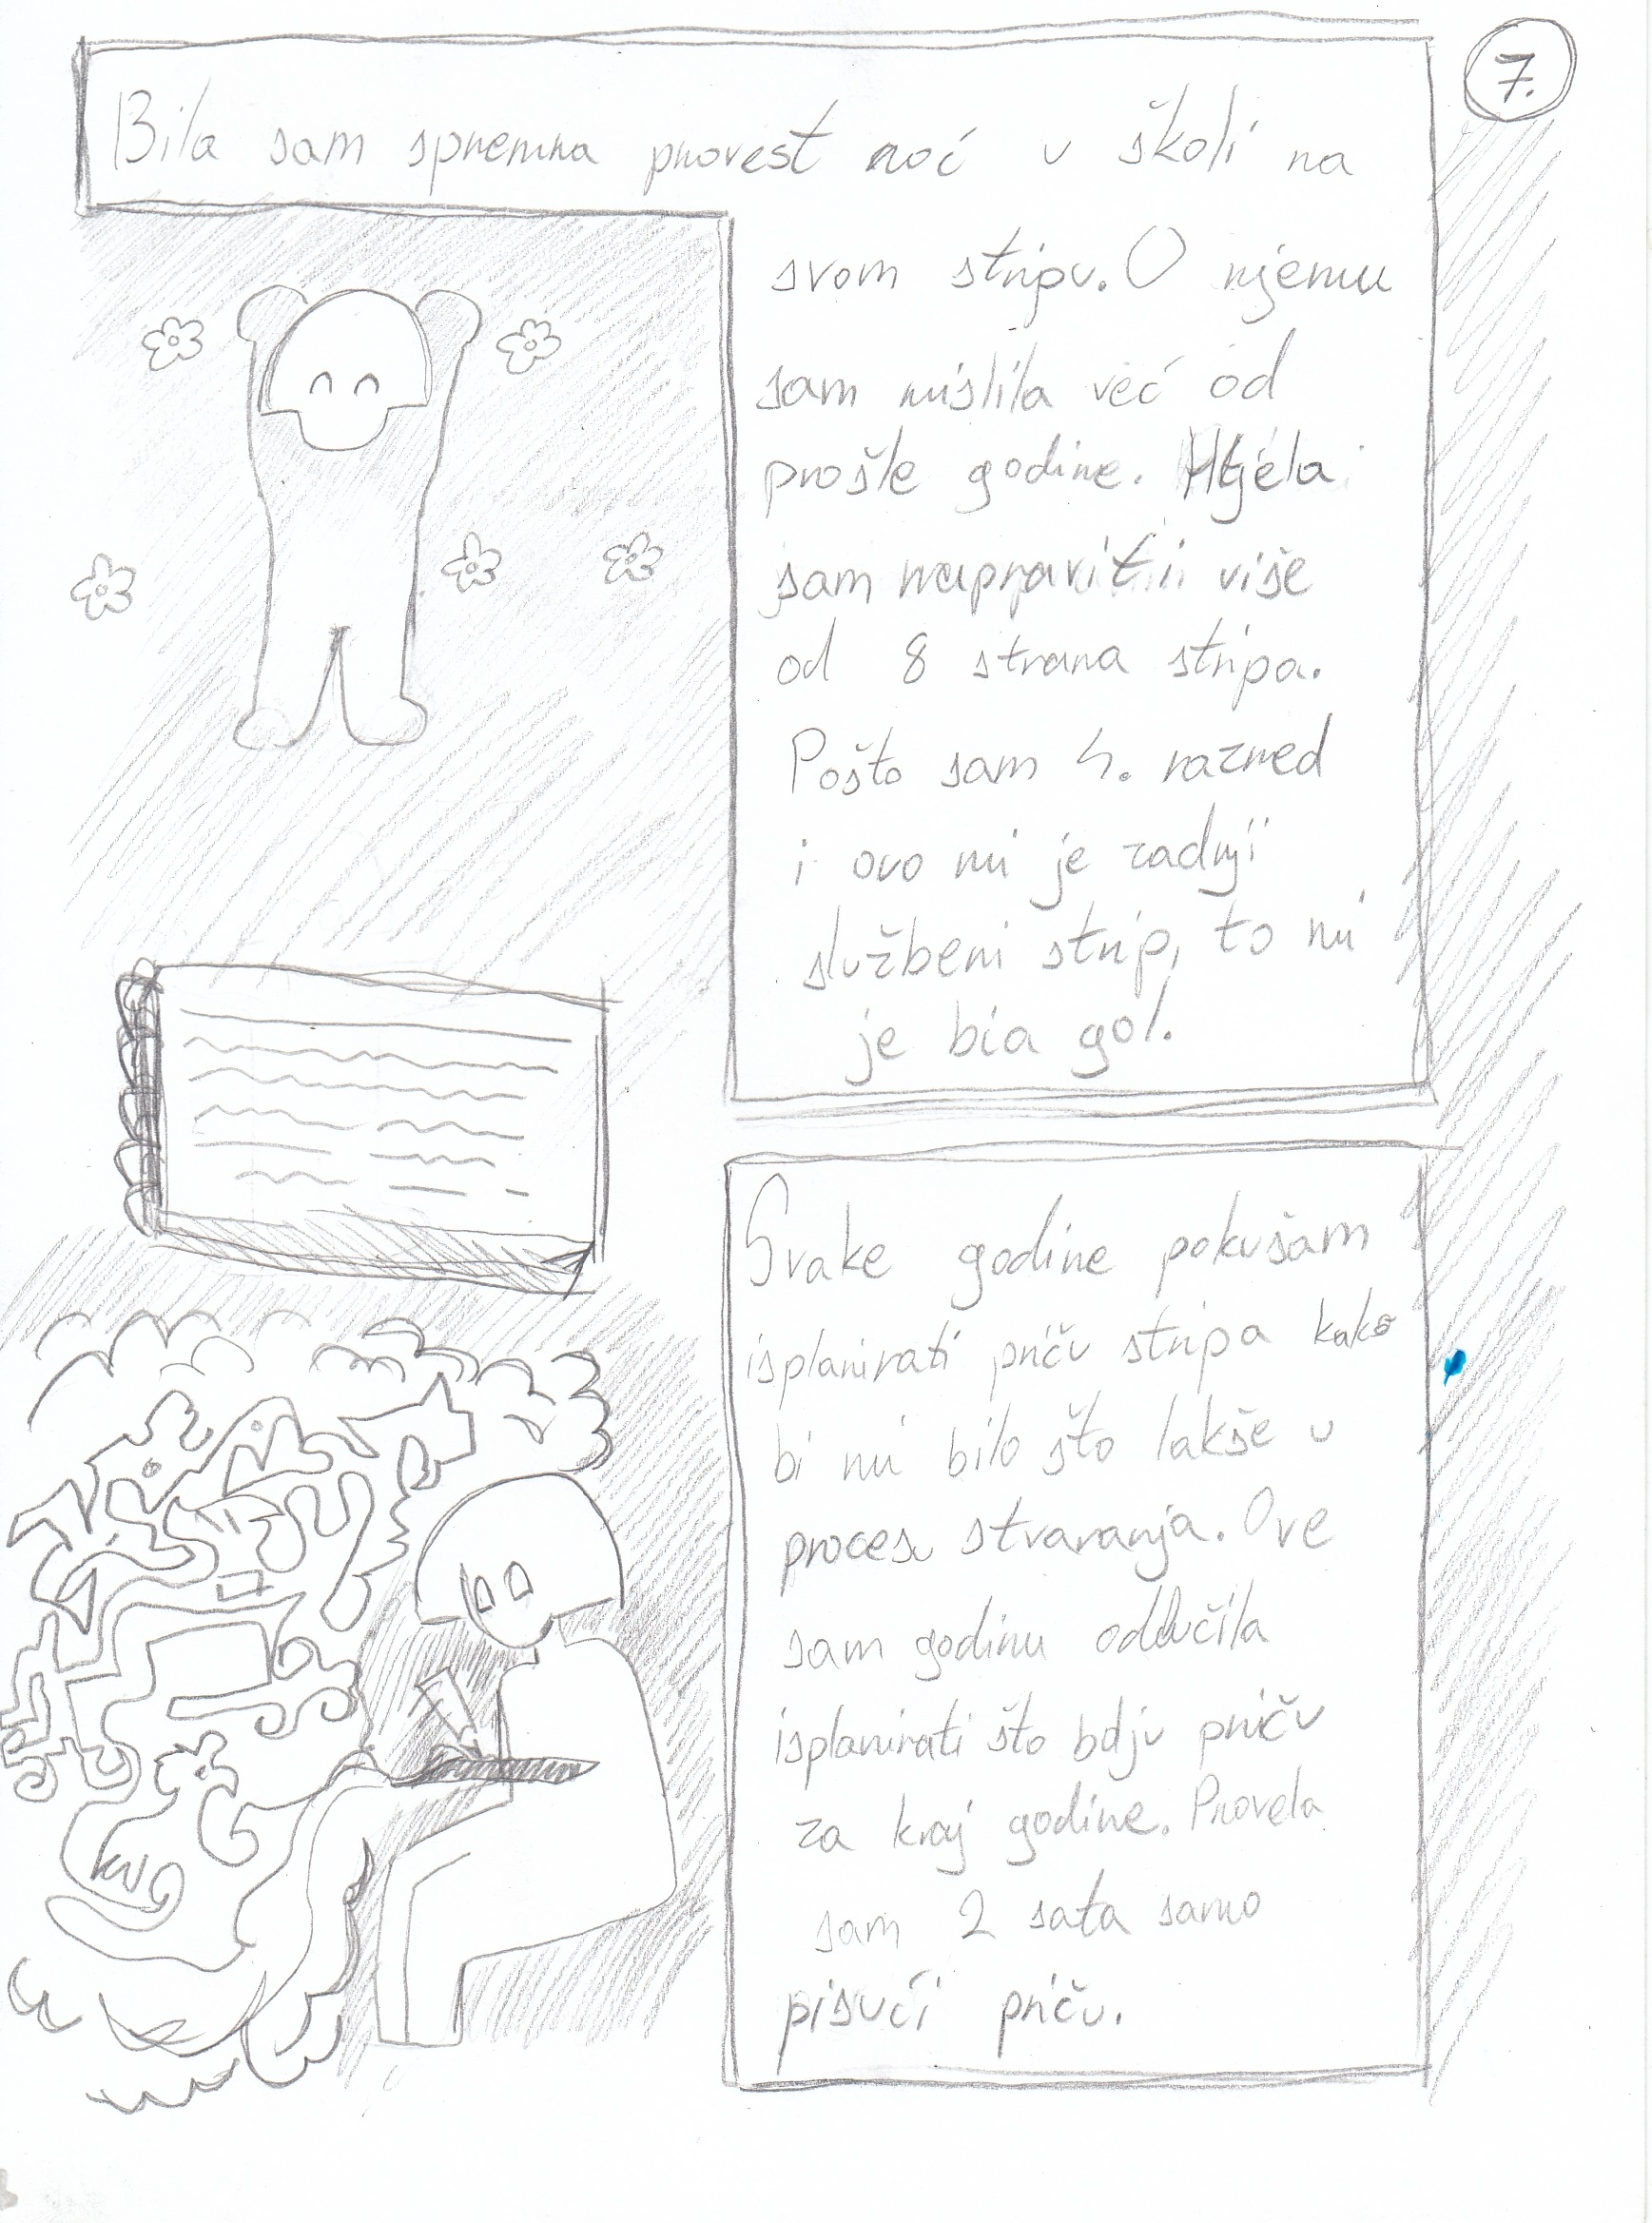 7.
Bila sam spremna provest noć u školi na
svom stripu. O njemu
sam mislila već od
prošle godine. Htjela
sam napraviti više
od 8 strana stripa.
Pošto sam 4. razred
i ovo mi je zadnji
službeni strip, to mi
je bia gol.
Svake godine pokušam
isplanirati priču stripa kako
bi mi bilo što lakše u
procesu stvaranja. Ove
sam godinu odlučila
isplanirati što bolju priču
za kraj godine. Provela
sam 2 sata samo
pisući priču.